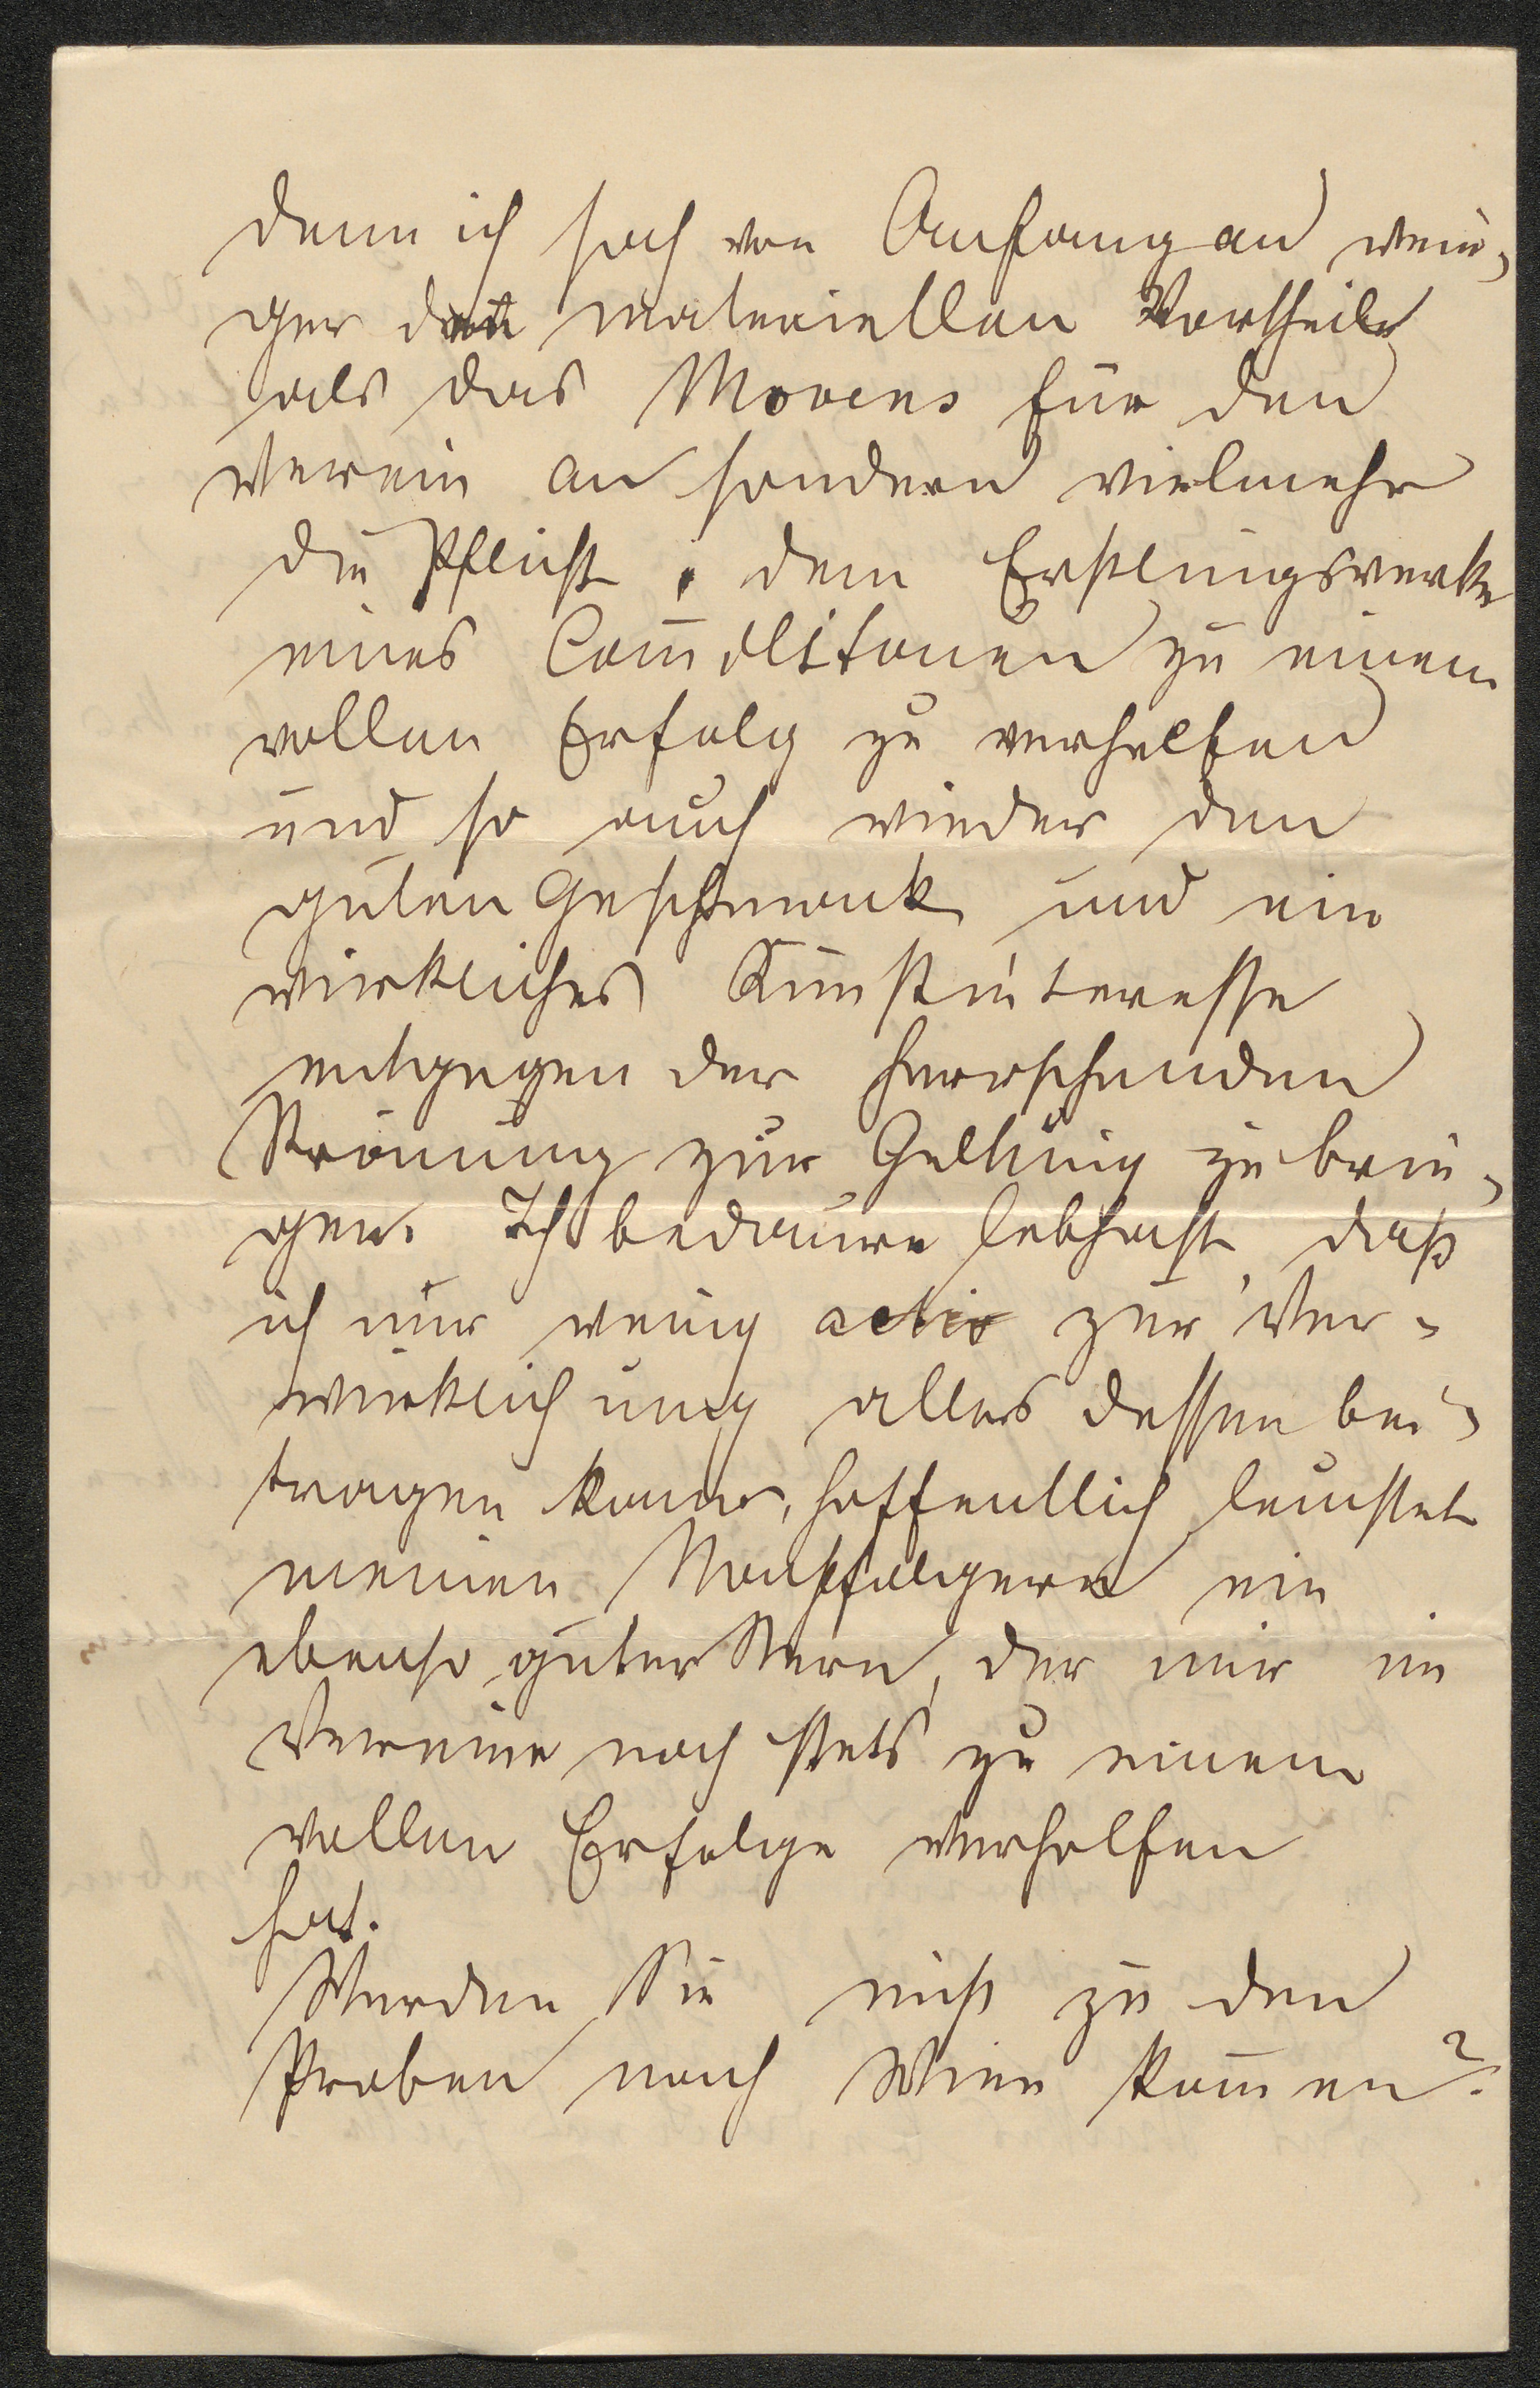 denn ich sah von Anfang an weni-
ger den materiellen Vortheil
als das Movens für den
Verein an sondern vielmehr
die Pflicht, dem Erstlingswerke
eines Com̅ilitonen zu einem
vollen Erfolg zu verhelfen
und so auch wieder den
guten Geschmack und ein
wirkliches Kunstinteresse
entgegen der herrschenden
Strömung zur Geltung zu brin-
gen. Ich bedaure lebhaft, daß
ich nur wenig activ zur Ver-
wirklichung alles dessen bei-
tragen kann, hoffentlich leuchtet
meinen Nachfolgern ein
ebenso guter Stern, der mir im
Vereine noch stets zu einem
vollen Erfolge verholfen
hat.
Werden Sie nicht zu den
Proben nach Wien kom̅en?